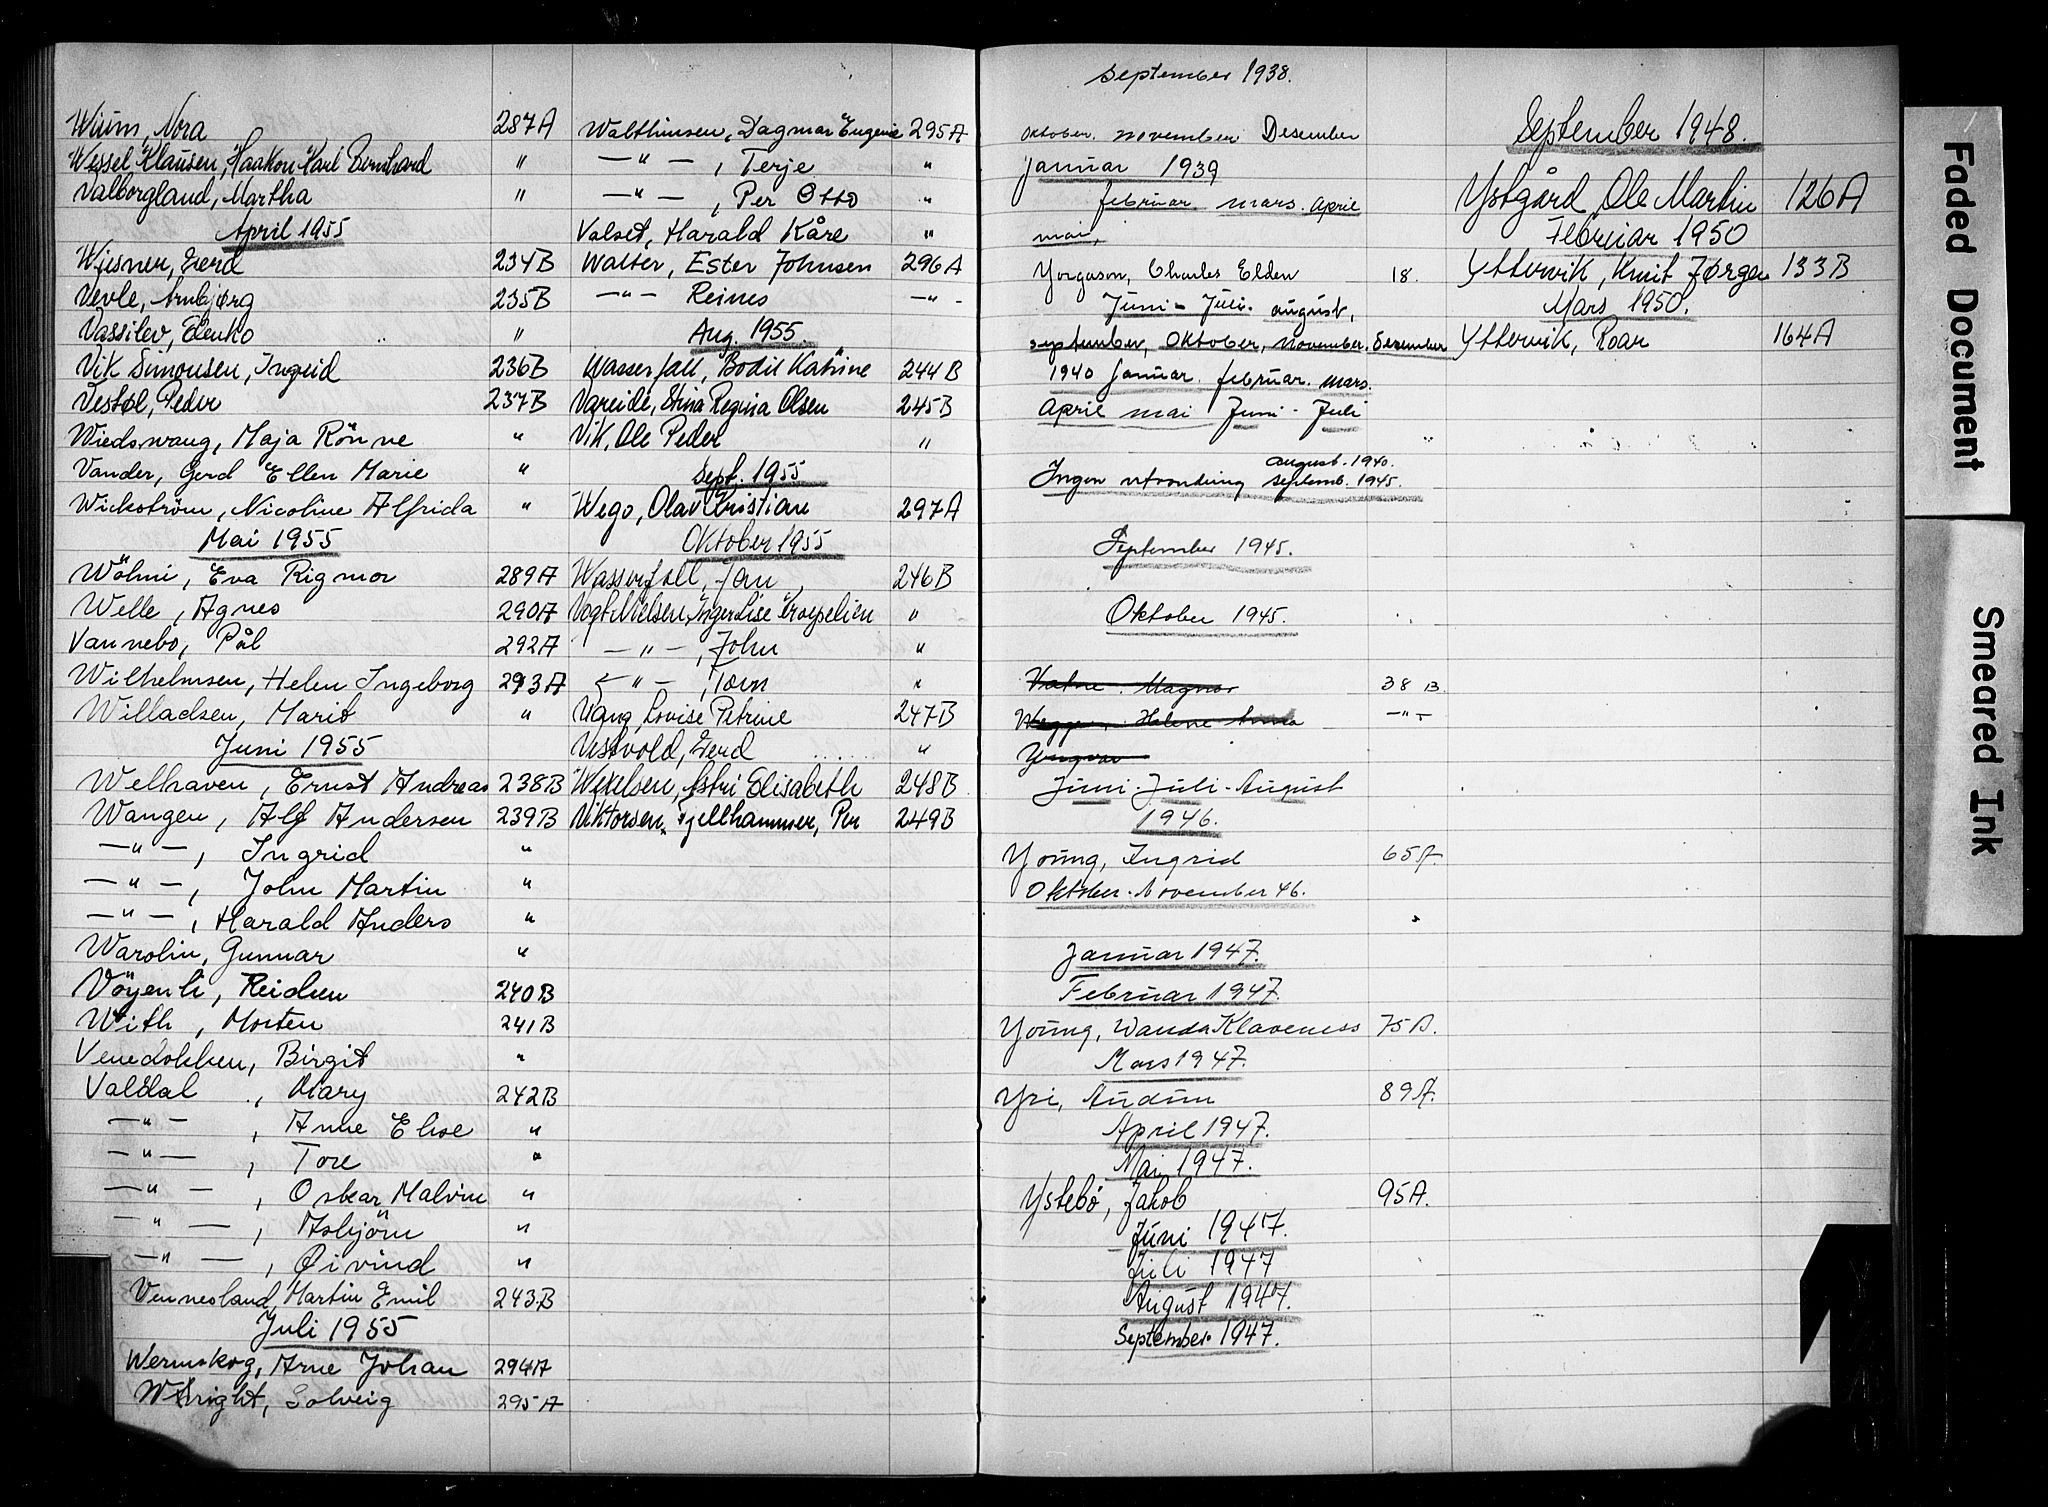 Wium, Nora 287A
Wessel Klausen, Haakon Karl Bernhard "
Valborgland, Martha "
April 1955
Wiesner, Gerd 234B
Vevle, Arnbjørg 235B
Vassilev, Elenko "
Vik Simonsen, Ingrid 236B
Vestøl, Peder 237B
Wiedswang, Maja Rönne "
Vander, Gerd Ellen Marie "
Wickström, Nicoline Alfrida "
Mai 1955
Wöhni, Eva Rigmor 289A
Welle, Agnes 290A
Vannebo, Pål 292A
Wilhelmsen, Helen Ingeborg 293A
Willadsen, Marit "
Juni 1955
Welhaven, Ernst Andreas 238B
Wangen, Alf Andersen 239B
—"—, Ingrid "
—"—, John Martin "
—"—, Harald Anders "
Warolin, Gunnar "
Vöyenli, Reidun 240B
With, Morten 241B
Venedokken, Birgit "
Valdal, Mary 242B
—"—, Anne Elise "
—"—, Tore "
—"—, Oskar Malvin "
—"—, Asbjörn "
—"—, Øivind "
Vennesland, Martin Emil 243B
Juli 1955
Wermskog, Arne Johan 294A
Wright, Solveig 295A
Walthinsen, Dagmar Eugenie 295A
—"—, Terje "
—"—, Per Otto "
Valset, Harald Kåre "
Walter, Ester Johnsen 296A
—"— Reines —"—
Aug. 1955
Wasserfall, Bodil Katrine 244B
Vareide, Stina Regina Olsen 245B
Vik, Ole Peder "
Sept. 1955
Wego, Olav Kristian 297A
Oktober 1955
Wasserfall, Jan 246B
Vogt Nielsen, Inger Lise Kroepelien "
—"—, John "
—"—, Tom "
Vang, Lovise Petrine 247B
Vestvold, Gerd "
Wexelsen, Astri Elisabeth 248B
Viktorsen Fjellhammer, Per 249B
september 1938.
oktober. november Desember
januar 1939
februar. mars. april
mai,
Yorgason, Charles Elden 18.
Juni - Juli. august,
september, oktober, november. Desember
1940 Januar. februar. mars.
April mai Juni - Juli
august. 1940.
Ingen utvandring septemb. 1945.
September 1945.
Oktober 1945.
Vatne. Magnar 38 B.
Wegger, Helene Anna —"—
Yngvar
Juni - Juli - August
1946.
Young, Ingrid 65A
Oktober - November 46.
Januar 1947.
Februar 1947.
Young, Wanda Klaveness 75A.
Mars 1947.
Yri, Audun 89A.
April 1947.
Mai 1947.
Ystebö, Jakob 95A.
Juni 1947.
Juli 1947
August 1947.
September 1947.
September 1948.
Ystgård, Ole Martin 126A
Februar 1950
Yttervik, Knut Jørgen 133B
Mars 1950.
Yttervik, Roar 164A
Faded Document
Smeared Ink